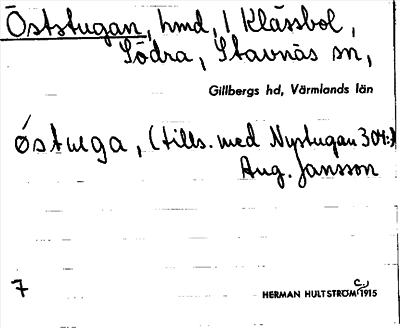 Öststugan, hmd, 1 Klässbol,
Södra, Stavnäs sn,
Gillbergs hd, Värmlands län
østuga, (tills. med Nystugan 304:)
Aug. Jansson
7
HERMAN HULTSTRÖM c:) 1915